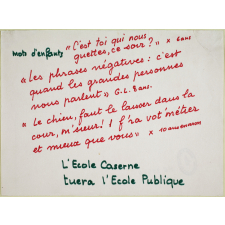 mots d'enfants "C'est toi qui nous
guettes, ce soir?" x 6 ans
« Les phrases négatives : c'est
quand les grandes personnes
nous parlent » G.L. 8 ans.
« Le chien, faut le laisser dans la
cour, m'sieur! I f'ra vot métier
et mieux que vous » x 10 ans
L'Ecole Caserne
tuera l'Ecole Publique